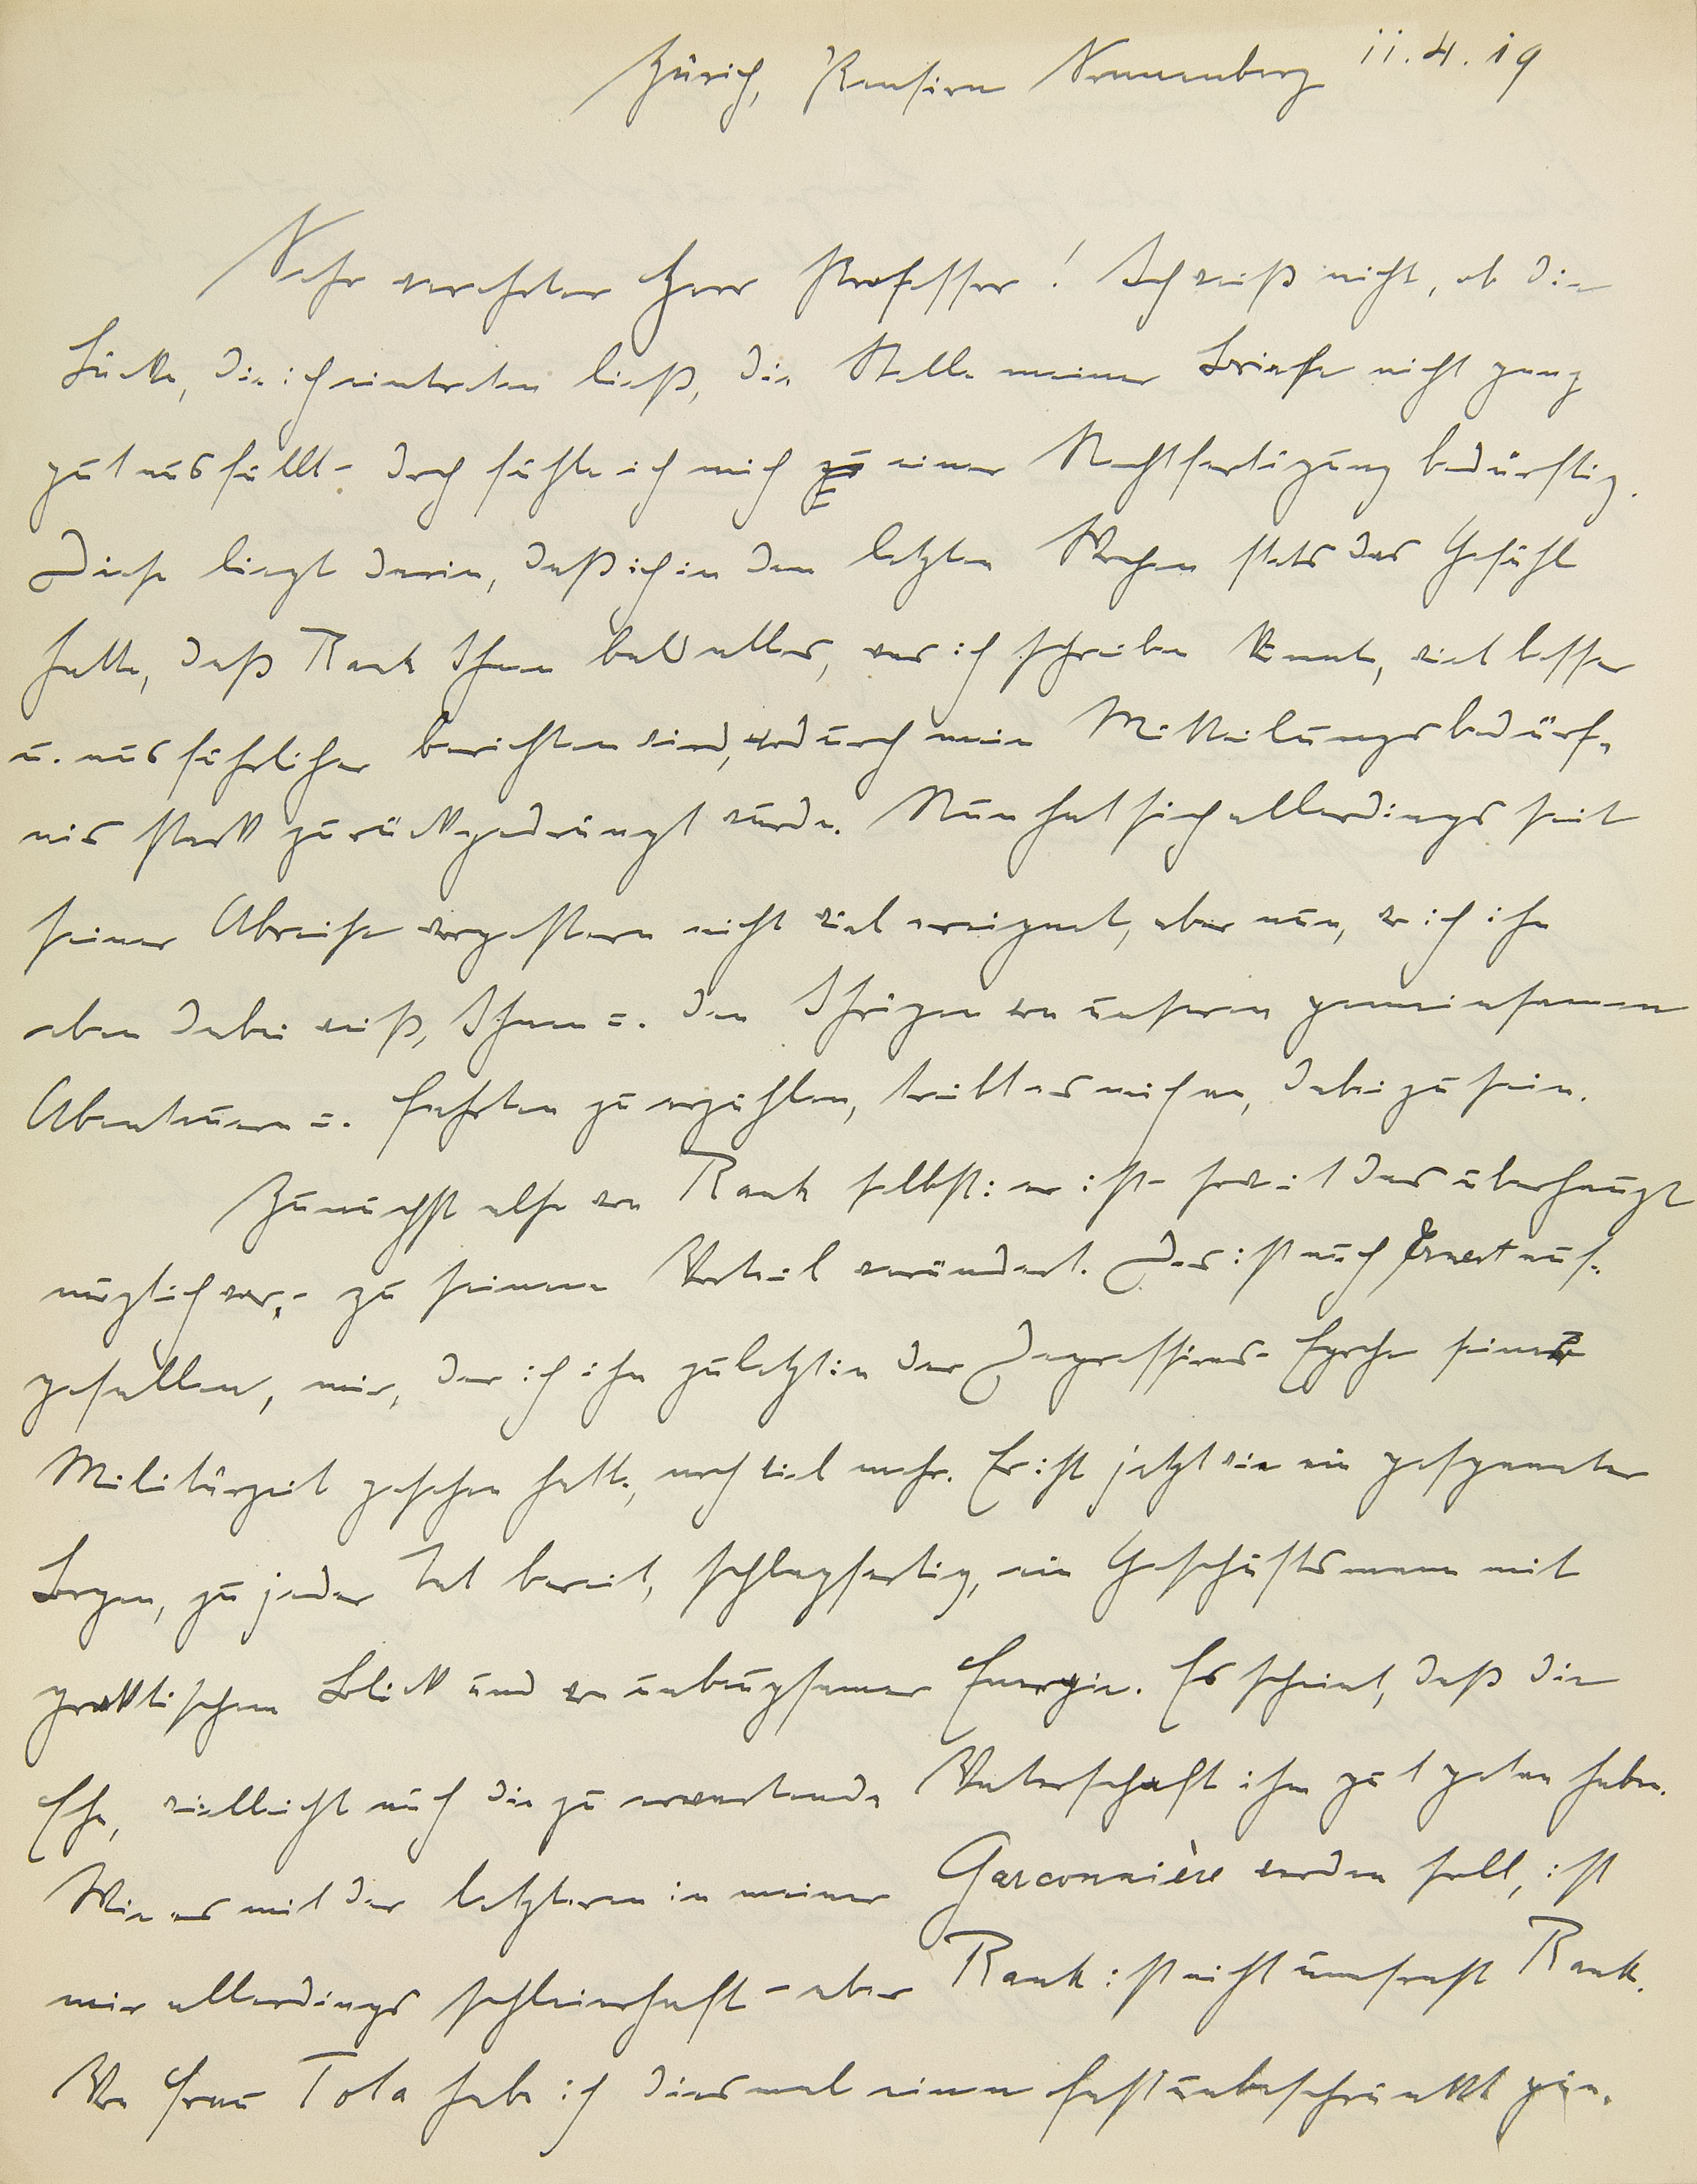 Zürich, Pension Sonnenberg 11.4.19
Sehr verehrter Herr Professor! Ich weiß nicht, ob die
Lücke, die ich eintreten ließ, die Stelle meiner Briefe nicht ganz
gut ausfüllt - doch fühle ich mich einer Rechtfertigung bedürftig.
Diese liegt darin, daß ich in den letzten Wochen stets das Gefühl
hatte, daß Rank Ihnen bald alles, was ich schreiben könnte, viel besser
u. ausführlicher berichten wird, wodurch mein Mitteilungsbedürf-
nis stark zurückgedrängt wurde. Nun hat sich allerdings seit
seiner Abreise vorgestern nicht viel ereignet, aber nun, wo ich ihn
eben dabei weiß, Ihnen u. den Ihrigen von unseren gemeinsamen
Abenteuern u. Fahrten zu erzählen, treibt es mich an, dabei zu sein.
Zunächst also von Rank selbst: er ist - soweit das überhaupt
möglich war, - zu seinem Vorteil verändert. Das ist auch Ernest auf-
gefallen, mir, der ich ihn zuletzt in der Depressions-Epoche seiner
Militärzeit gesehen hatte, noch viel mehr. Er ist jetzt wie ein gespannter
Bogen, zu jeder Tat bereit, schlagfertig, ein Geschäftsmann mit
praktischem Blick und von unbeugsamer Energie. Es scheint, daß die
Ehe, vielleicht auch die zu erwartende Vaterschaft ihm gut getan haben.
Wie es mit der letzteren in meiner Garconnière werden soll, ist
mir allerdings schleierhaft - aber Rank ist nicht umsonst Rank.
Von Frau Tola habe ich diesmal einen fast unbeschränkt gün-